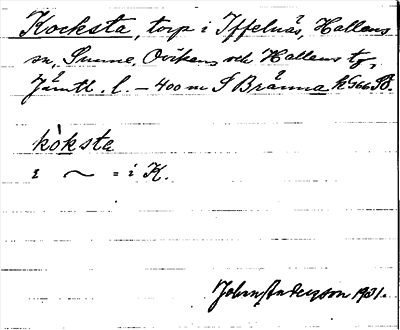 Kocksta, torp i Ytterån, Hallens
sn, Sunne, Ovikens och Hallens tg,
Jämtl. l. – 400 m S Bränna k G66 SO.
kòksta
i ~ = i K.
John Anderson 1931.